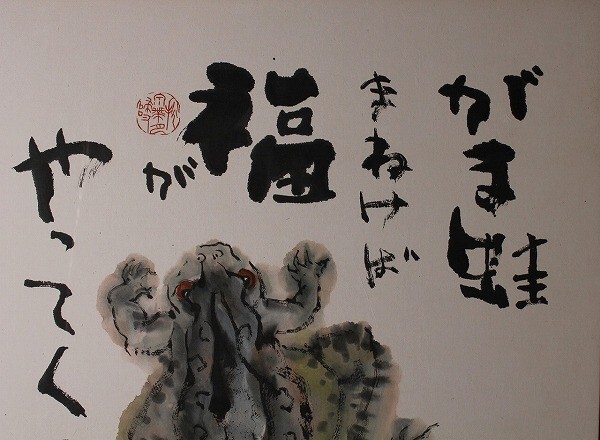 がま蛙
まねけば
福
が
やってく